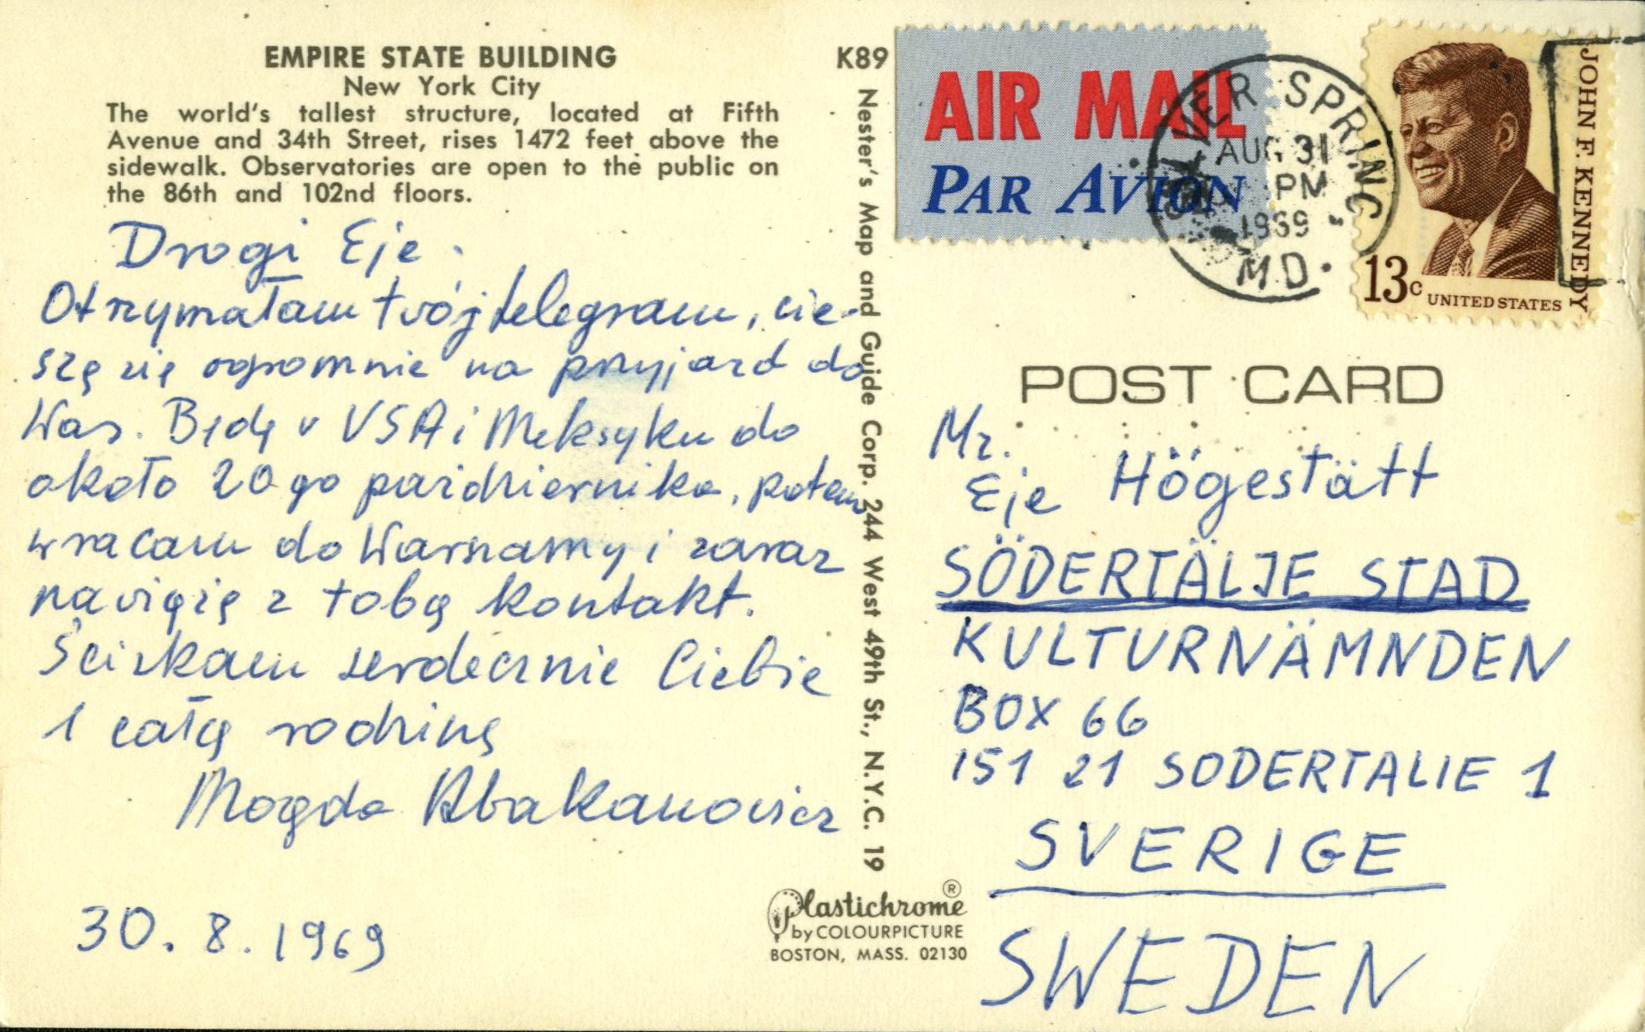 EMPIRE STATE BUILDING
New York City
The world's tallest structure, located at Fifth
Avenue and 34th Street, rises 1472 feet above the
sidewalk. Observatories are open to the public on
the 86th and 102nd floors.
Drogi Eje.
Otrzymałam twój telegram, cie-
szę się ogromnie na przyjazd do
Was. Będę w USA i Meksyku do
około 20go października, potem
wracam do Warszawy i zaraz
nawiążę z tobą kontakt.
Ściskam serdecznie Ciebie
i całą rodzinę
Magda Abakanowicz
30.8.1969
K89
Nester's Map and Guide Corp. 244 West 49th St., N.Y.C. 19
Plastichrome®
by COLOURPICTURE
BOSTON, MASS. 02130
AIR MAIL
PAR AVION
SILVER SPRING
AUG 31
PM
1969
MD.
JOHN F. KENNEDY
13c UNITED STATES
POST CARD
Mr.
Eje Högestätt
SÖDERTÄLJE STAD
KULTURNÄMNDEN
BOX 66
151 21 SODERTALIE 1
SVERIGE
SWEDEN